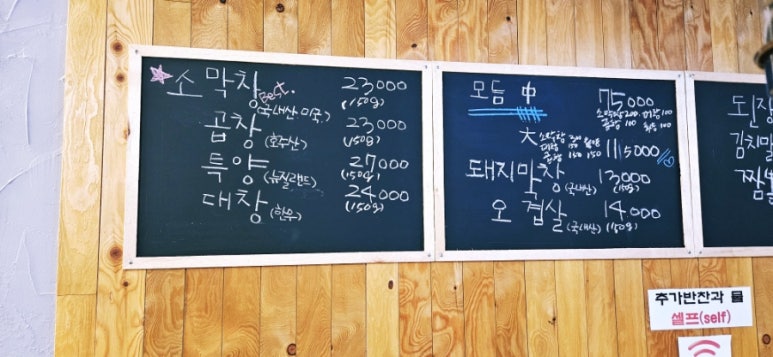 소 막창 23000
Best.
(국내산 미국) (150g)
곱창 23000
(호주산) (150g)
특양 27000
(뉴질랜드) (150g)
대창 24000
(한우) (150g)
모듬 中 75000
大 115000
돼지막창 13000
(국내산) (150g)
오겹살 14.000
(국내산) (150g)
된장
김치말
짬뽕
추가반찬과 물
셀프(self)